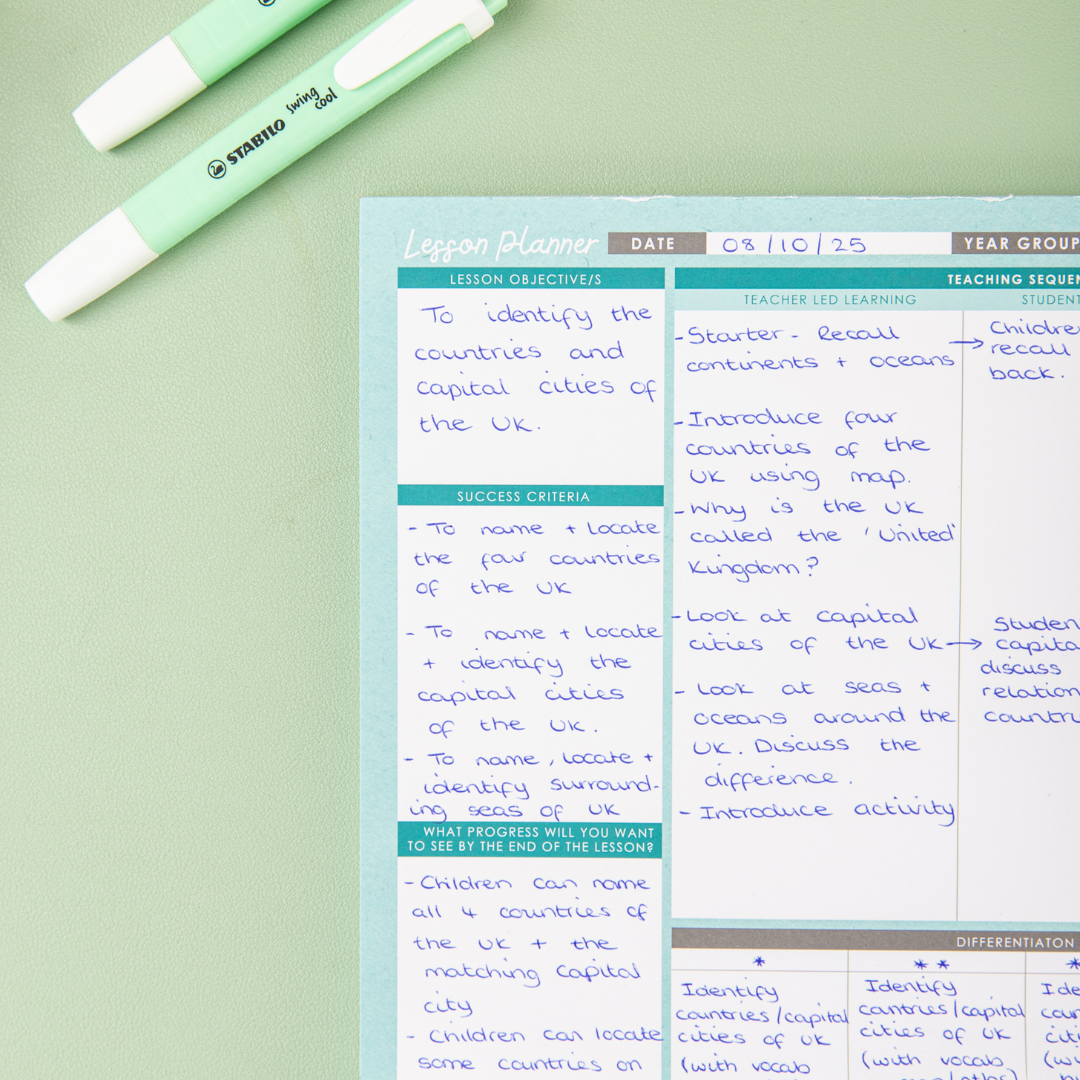 STABILO swing cool
Lesson Planner
DATE 08/10/25
YEAR GROUP
LESSON OBJECTIVE/S
To identify the
countries and
capital cities of
the UK.
SUCCESS CRITERIA
- To name + locate
the four countries
of the UK
- To name + locate
+ identify the
capital cities
of the UK.
- To name, locate +
identify surround-
ing seas of UK
WHAT PROGRESS WILL YOU WANT
TO SEE BY THE END OF THE LESSON?
- Children can name
all 4 countries of
the UK + the
matching capital
city
- Children can locate
some countries on
TEACHING SEQUEN
TEACHER LED LEARNING
- Starter - Recall
continents + oceans →
- Introduce four
countries of the
UK using map.
- Why is the UK
called the 'United
Kingdom?
- Look at capital
cities of the UK →
- Look at seas +
oceans around the
UK. Discuss the
difference.
- Introduce activity
STUDENT
Childre
recall
back.
Studen
capita
discuss
relation
countri
DIFFERENTIATON
*
Identify
countries/capital
cities of UK
(with vocab
* *
Identify
countries/capital
cities of UK
(with vocab
*
Ide
coun
citi
(wi